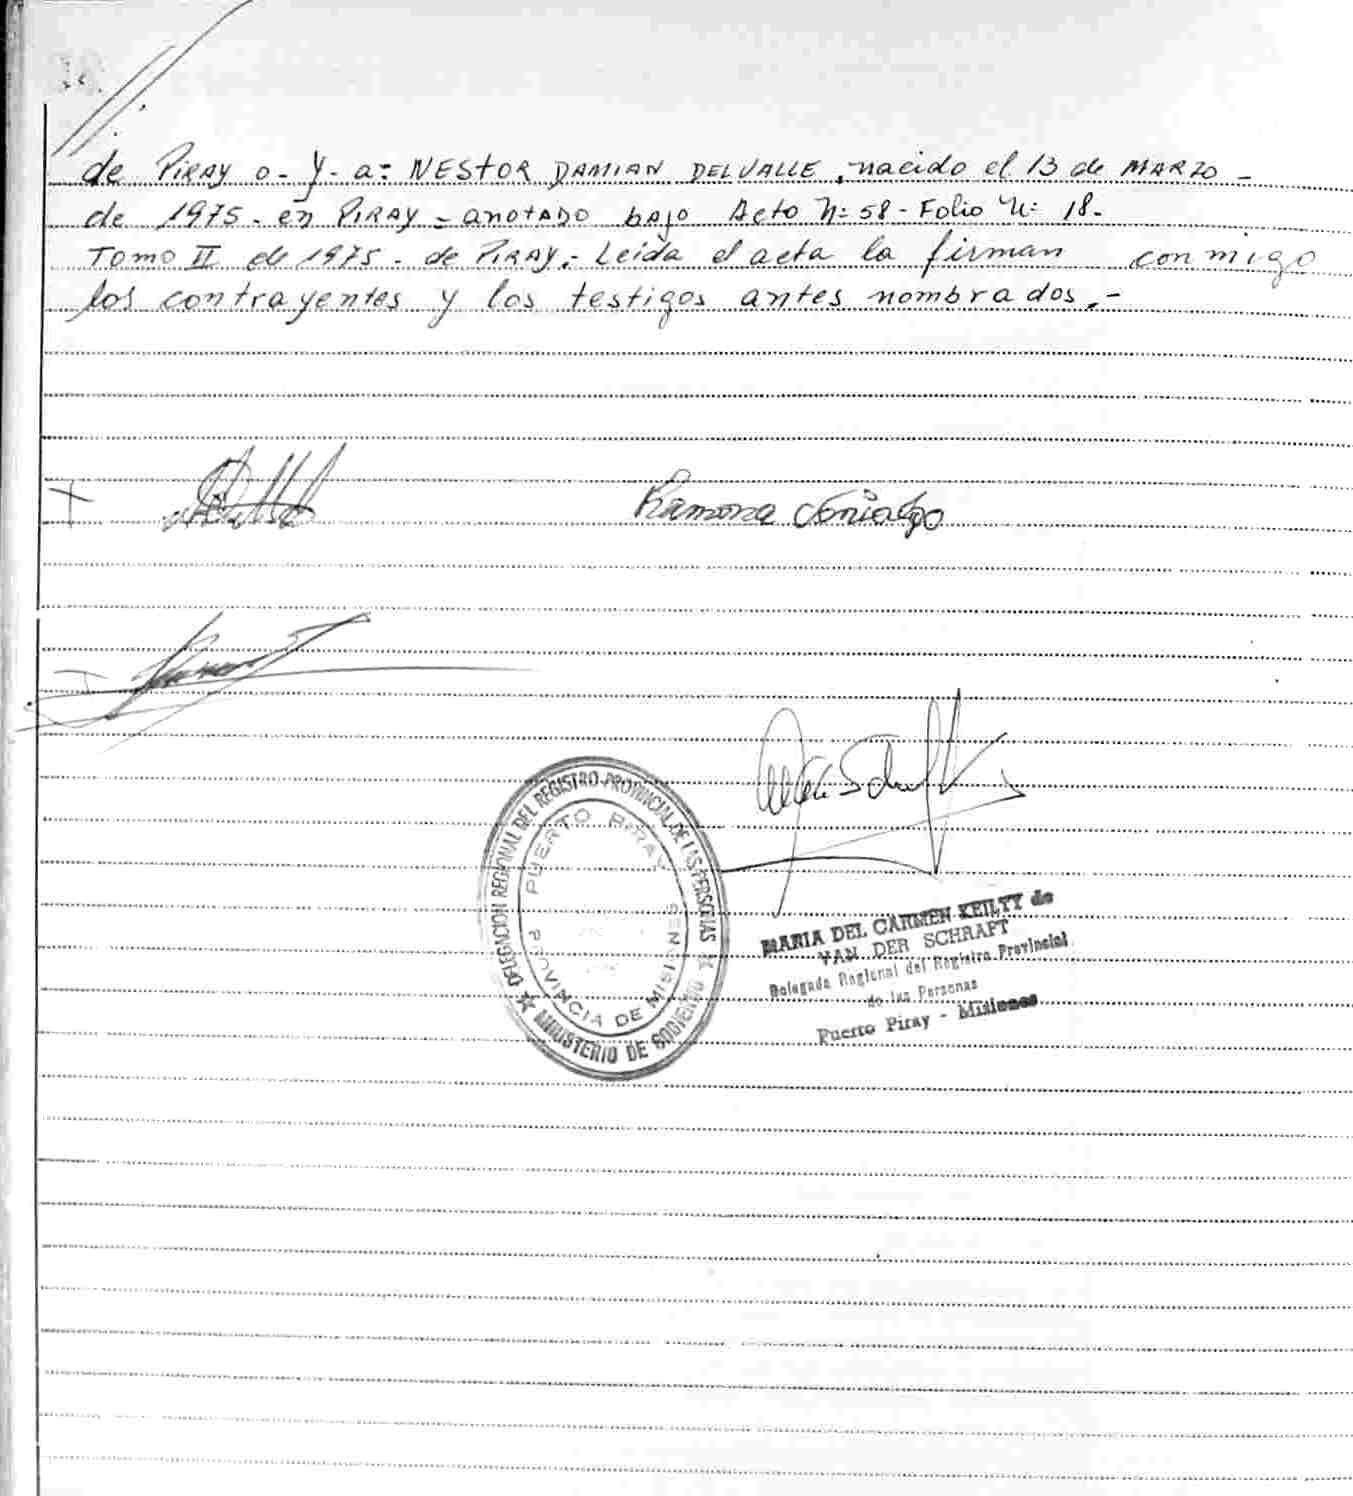 de PIRAY o- y- a= NESTOR DAMIAN DELVALLE, nacido el 13 de MARZO -
de 1975- en PIRAY = anotado bajo Acto N= 58 - Folio N= 18.
TOMO II de 1975 - de PIRAY,- Leída el acta la firman conmigo
los contrayentes y los testigos antes nombrados.-
Ramona
DELEGACION REGIONAL DEL REGISTRO PROVINCIAL DE LAS PERSONAS
MINISTERIO DE GOBIERNO
PUERTO PIRAY
PROVINCIA DE MISIONES
MARIA DEL CARMEN KEILTY de
VAN DER SCHRAFT
Delegada Regional del Registro Provincial
de las Personas
Puerto Piray - Misiones